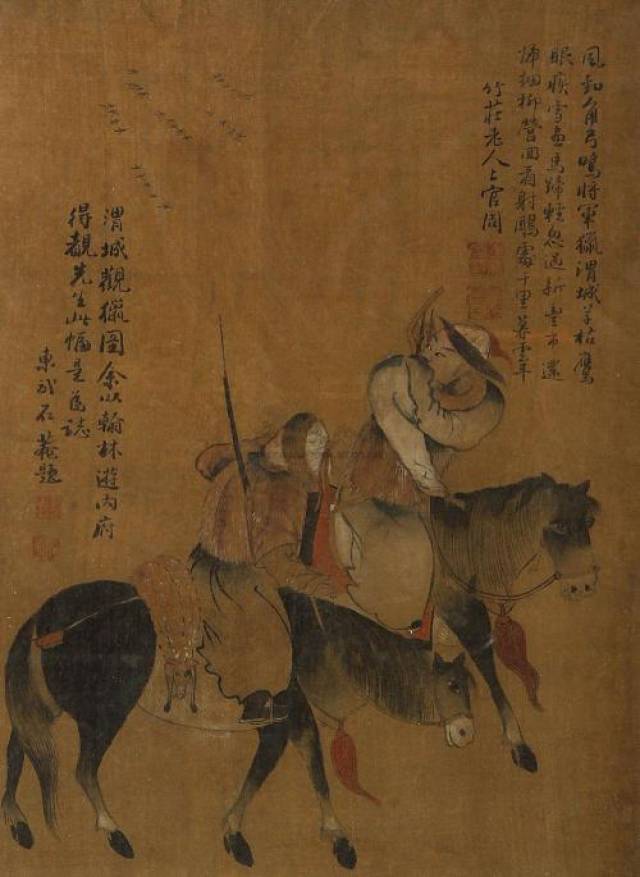 風勁角弓鳴將軍獵渭城草枯鷹
眼疾雪盡馬蹄輕忽過新豐市還
歸細柳營回看射鵰處千里暮雲平
竹莊老人上官周
渭城觀獵圖余以翰林遊內府
得覩先生此幅是為誌
東武石菴題